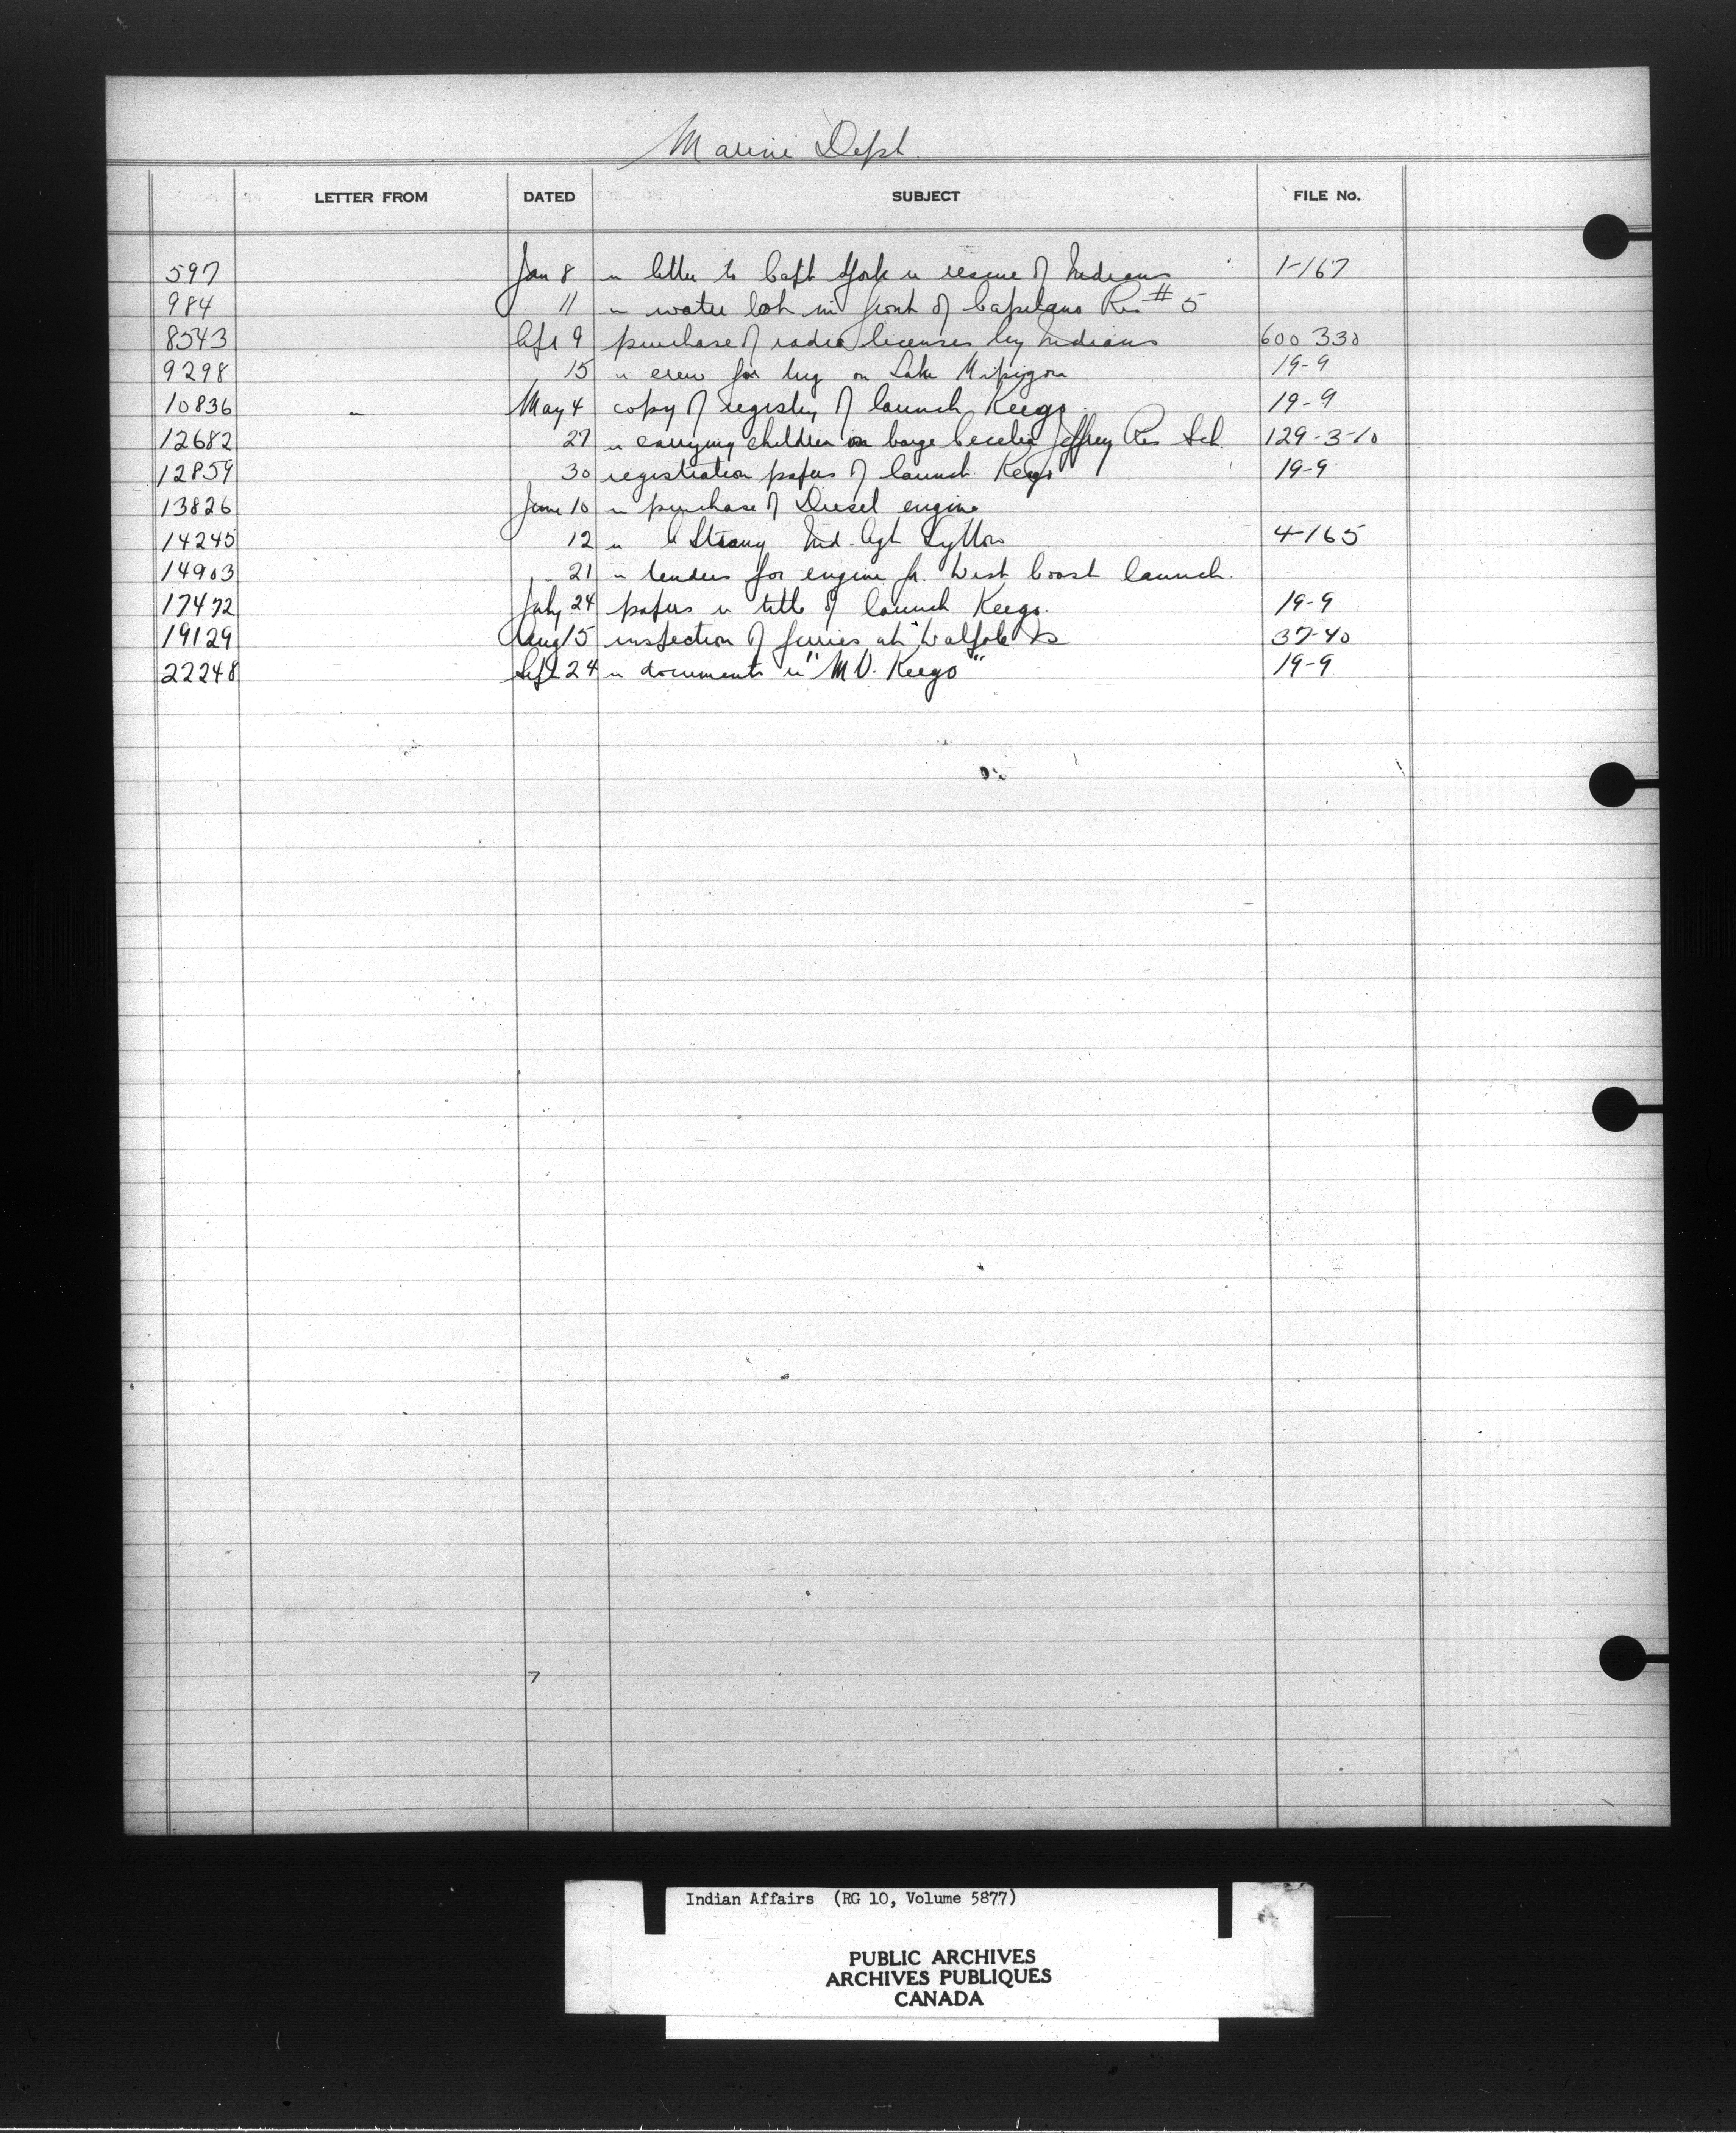 Marine Dept.
LETTER FROM DATED SUBJECT FILE No.
597 Jan 8 re letter to Capt York re rescue of Indians 1-167
984 11 re water lots in front of Capilano Res # 5
8543 Apr 9 purchase of radio licenses by Indians 600 330
9298 15 re crew for tug on Lake Nipigon 19-9
10836 " May 4 copy of registry of launch Keego. 19-9
12682 27 re carrying children on barge Cecelia Jeffrey Res Sch. 129-3-10
12859 30 registration papers of launch Keego 19-9
13826 June 10 re purchase of Diesel engine
14245 12 re A Strang Ind. Agt Lytton 4-165
14903 21 re tenders for engine for West Coast launch.
17472 July 24 papers re title of launch Keego. 19-9
19129 Aug 15 inspection of ferries at Walpole Is 37-40
22248 Sept 24 re documents re "M.V. Keego" 19-9
7
Indian Affairs (RG 10, Volume 5877)
PUBLIC ARCHIVES
ARCHIVES PUBLIQUES
CANADA